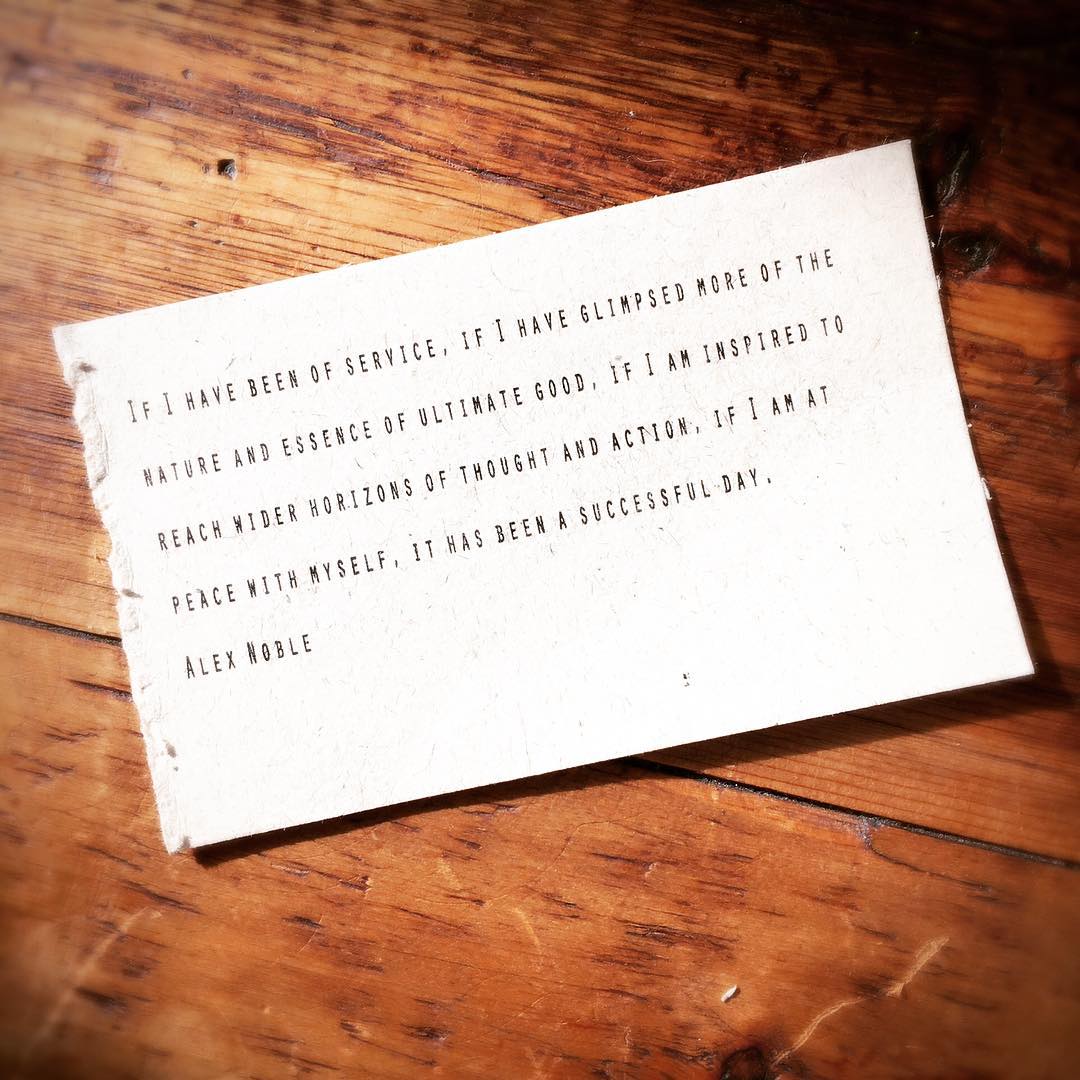 If I have been of service, if I have glimpsed more of the
nature and essence of ultimate good, if I am inspired to
reach wider horizons of thought and action, if I am at
peace with myself, it has been a successful day.
Alex Noble